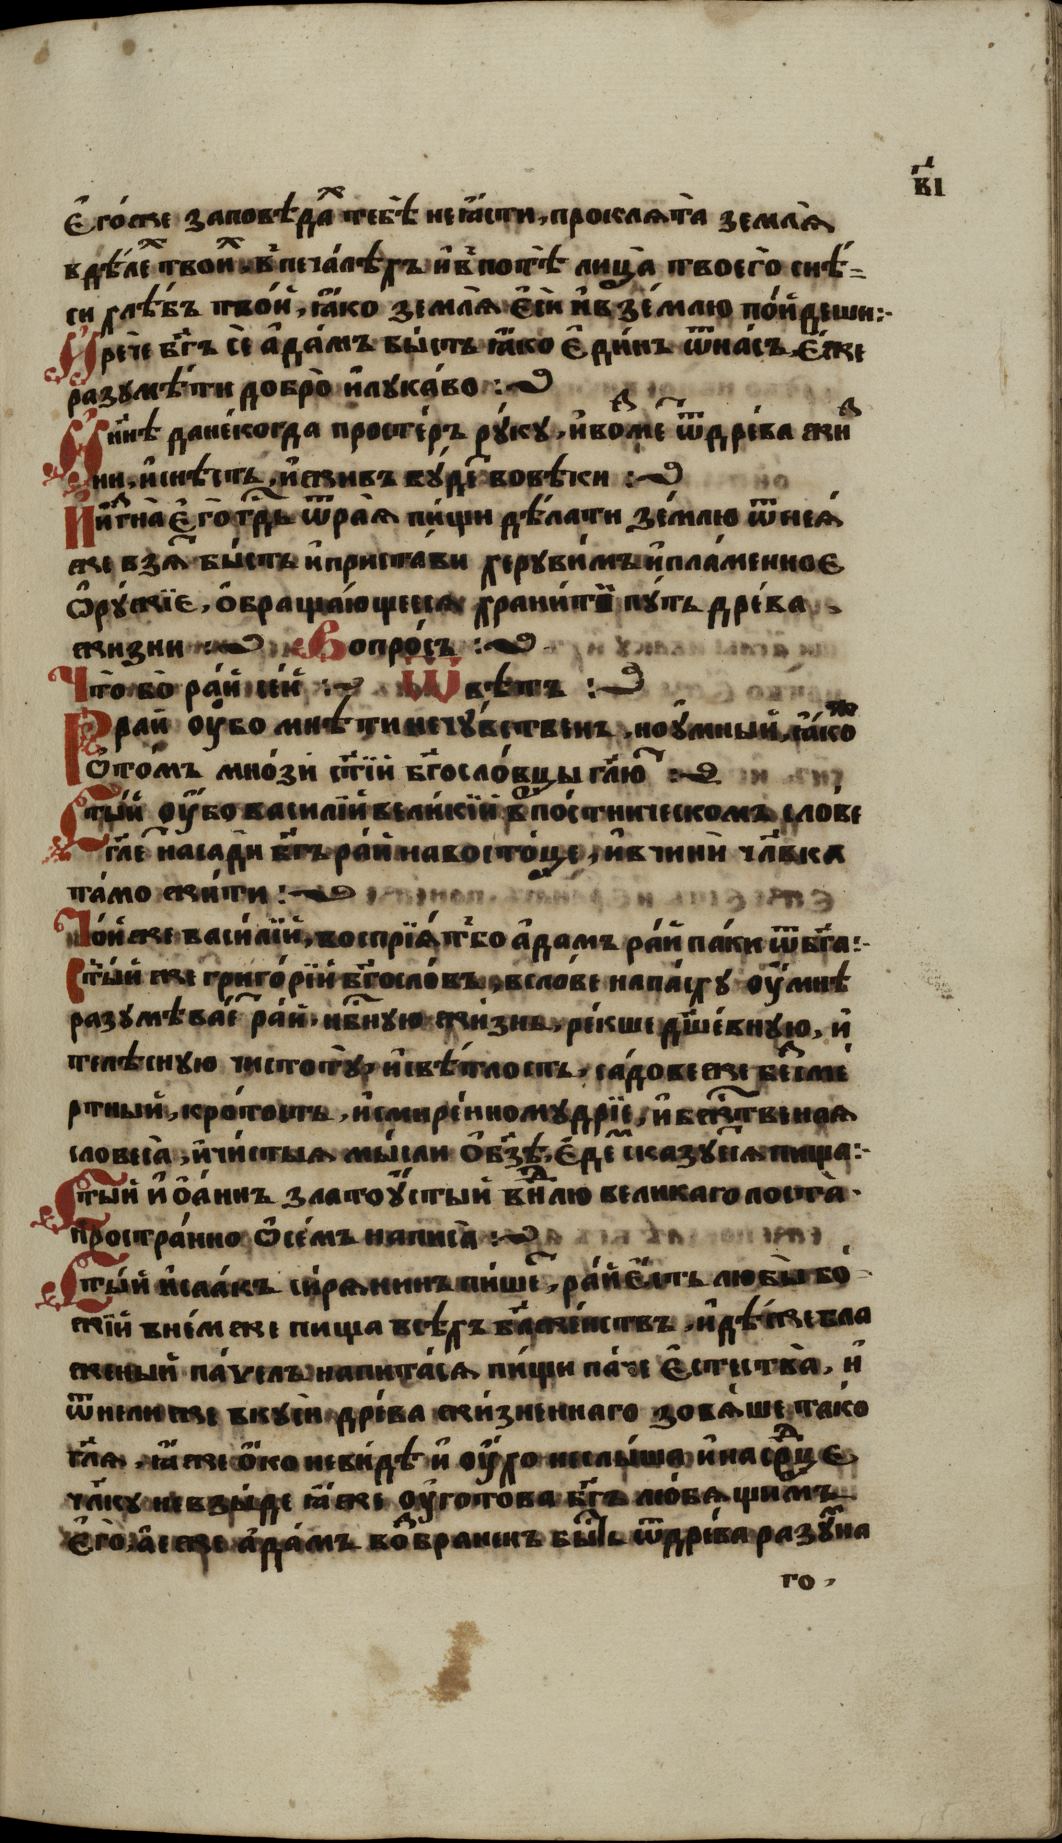 в҃і
Є҆го́же заповѣ́дахъ тебѣ̀ неꙗ҆́сти, проклѧта̀ землѧ̀
вдѣ́лехъ твои́хъ, впеча́лѣхъ и҆впо́тѣ лица̀ твоего̀ снѣ́=
си хлѣ́бъ тво́й, ꙗ҆́ко землѧ̀ є҆сѝ и҆взе́млю по́йдеши:-
И҆речѐ бг҃ъ сѐ а҆да́мъ бы́сть ꙗ҆́ко є҆ди́нъ ѿна́съ, є҆́же
разумѣ́ти добро̀ и҆лука́во :~
И҆нн҃ѣ дане́когда просте́ръ ру́ку, и҆во́зме ѿдре́ва жи́з
ни, и҆снѣ́сть, и҆жи́въ бу́детъ вовѣ́ки :~
И҆и҆згна̀ є҆го̀ гдⷭ҇ь ѿраѧ̀ пи́щи дѣ́лати зе́млю ѿнеѧ́
же взѧ́тъ бы́сть и҆приста́ви херуви́мъ и҆пла́менноє
ѻ҆ру́жїє, ѻ҆браща́ющеесѧ храни́ти пу́ть дре́ва
жи́зни :~ Вопро́съ :~
Что̀ бо ра́й се́й :~ Ѿвѣ́тъ :~
Рра́й оу҆́бо мнѣ́ти нечу́вственъ, ноу҆́мный, ꙗ҆́коже
ѻ҆то́мъ мно́зи ст҃і́и бг҃осло́вцы гл҃ютъ :~
Ст҃ы́й оу҆́бо васи́лїй вели́кїй впо́стническомъ сло́ве
гл҃етъ насадѝ бг҃ъ ра́й навосто́це, и҆вчинѝ чл҃вка
та́мо жи́ти :~
То́йже васи́лїй, воспрїѧ́тъбо а҆да́мъ ра́й па́ки ѿбг҃а:-
Ст҃ы́й же григо́рїй бг҃осло́въ, всло́ве напа́сху оу҆́мнѣ
разумѣва́етъ ра́й, нб҃ную жи́знь, ре́кше дш҃е́вную, и҆
теле́сную чистоту̀, и҆свѣ́тлость, са́дове же безсме́
ртный, кро́тость, и҆смире́нномудрїе, и҆бжⷭ҇твеная
словеса̀, и҆чи́стыѧ мы́сли ѻ҆бз҃ѣ, є҆де́мъ сказу́етсѧ пища:-
Ст҃ы́й и҆ѻ҆а́ннъ златоу҆́стый внⷣлю великаго поста̀
простра́нно ѻ҆се́мъ написа̀ :~
Ст҃ы́й и҆саа́къ си́рѧнинъ пи́шетъ, ра́й є҆́сть любы̀ бо́
жїй внемже пища всѣ́хъ блаже́нствъ, и҆дѣ́же бла
женый па́ѵелъ напита́сѧ пи́щи па́че є҆стества̀, и҆
ѿнелиже вкусѝ дре́ва жи́зненнаго зовѧ́ше та́ко
гл҃ѧ, ꙗ҆́же ѻ҆́ко неви́дѣ и҆ оу҆́хо неслы́ша и҆насрⷣце
чл҃ку невзы́де ꙗ҆́же оу҆гото́ва бг҃ъ лю́бѧщимъ
є҆го̀, а҆є҆́же а҆да́мъ возбране́нъ бы́сть ѿдре́ва разу́мна
го,